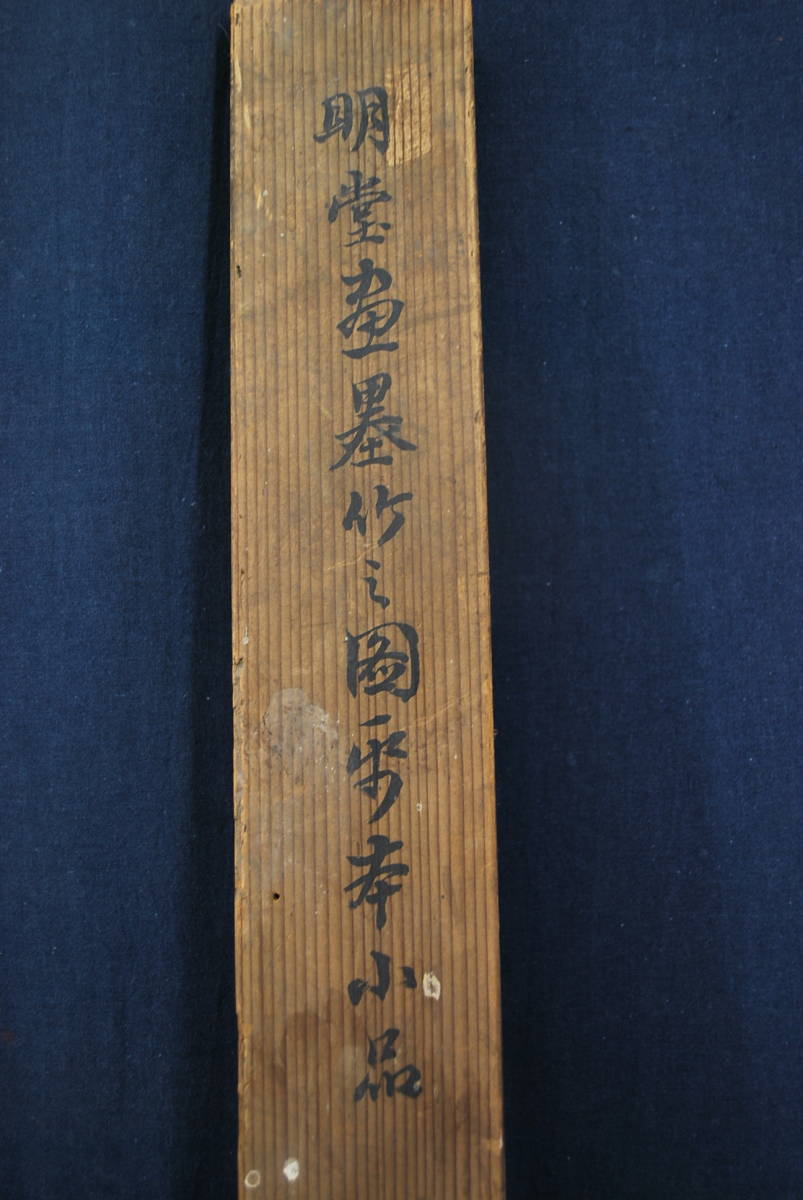 明堂画墨竹之圖帋本小品